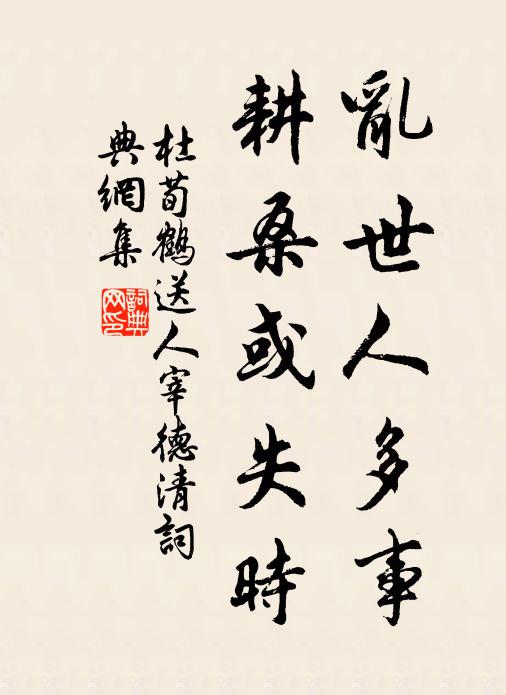 亂世人多事
耕桑或失時
杜荀鶴送人宰德清詞
典網集
詞典网印